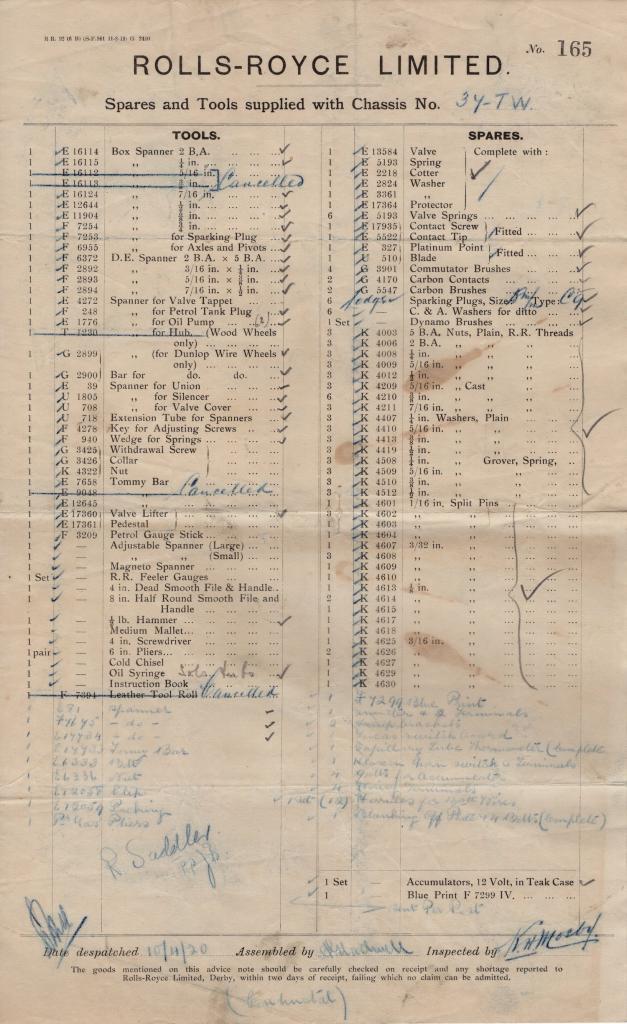 No. 165
ROLLS-ROYCE LIMITED.
Spares and Tools supplied with Chassis No. 34-TW.
TOOLS.
1 E 16114 Box Spanner 2 B.A.
1 E 16115 ,, ¼ in.
1 E 16112 ,, 5/16 in. Cancelled
1 E 16113 ,, in.
1 E 16124 ,, 7/16 in.
1 E 12644 ,, in.
1 E 11904 ,, in.
1 F 7254 ,, in.
1 F 7253 ,, for Sparking Plug
1 F 6955 ,, for Axles and Pivots
1 F 6372 D.E. Spanner 2 B.A. × 5 B.A.
1 F 2892 ,, 3/16 in. × ¼ in.
1 F 2893 ,, 5/16 in. × in.
1 F 2894 ,, 7/16 in. × ½ in.
1 E 4272 Spanner for Valve Tappet
1 F 248 ,, for Petrol Tank Plug
1 E 1776 ,, for Oil Pump (2)
1 T 1230 ,, for Hub, (Wood Wheels
only)
1 G 2899 ,, (for Dunlop Wire Wheels
only)
1 G 2900 Bar for do. do.
1 E 39 Spanner for Union
1 U 1805 ,, for Silencer
1 U 708 ,, for Valve Cover
1 U 718 Extension Tube for Spanners
1 F 4278 Key for Adjusting Screws
1 F 940 Wedge for Springs
1 G 3425 Withdrawal Screw
1 G 3426 Collar
1 K 4322 Nut
1 E 7658 Tommy Bar
1 E 9048 Cancelled
1 E 12645 ,,
1 E 17360 Valve Lifter
1 E 17361 Pedestal
1 F 3209 Petrol Gauge Stick
1 — Adjustable Spanner (Large)
1 — ,, ,, (Small)
1 — Magneto Spanner
1 Set — R.R. Feeler Gauges
1 — 4 in. Dead Smooth File & Handle
1 — 8 in. Half Round Smooth File and
Handle
1 — ½ lb. Hammer
1 — Medium Mallet
1 — 4 in. Screwdriver
1 pair — 6 in. Pliers
1 — Cold Chisel
1 — Oil Syringe
1 — Instruction Book
1 F 7394 Leather Tool Roll Cancelled
Spanner
- do -
- do -
Bar
Nut
Clip
Packing
Pliers
R Saddler
SPARES.
1 E 13584 Valve Complete with :
1 E 5193 Spring
1 E 2218 Cotter
1 E 2824 Washer
1 E 3361 ,,
1 E 17364 Protector
6 E 5193 Valve Springs
1 E 17935 Contact Screw Fitted
1 E 5522 Contact Tip
1 E 327 Platinum Point Fitted
1 U 510 Blade
4 G 3901 Commutator Brushes
2 G 4170 Carbon Contacts
2 G 5547 Carbon Brushes
6 Lodge Sparking Plugs, Size Type:
6 — C. & A. Washers for ditto
1 Set — Dynamo Brushes
3 K 4003 5 B.A. Nuts, Plain, R.R. Threads
3 K 4006 2 B.A. ,, ,,
3 K 4008 ¼ in. ,, ,,
3 K 4009 5/16 in. ,, ,,
3 K 4012 in. ,, ,,
3 K 4209 5/16 in. ,, Cast
6 K 4210 in. ,, ,,
3 K 4211 7/16 in. ,, ,,
3 K 4407 ¼ in. Washers, Plain
3 K 4410 5/16 in. ,, ,,
3 K 4413 in. ,, ,,
3 K 4419 in. ,, ,,
3 K 4508 ¼ in. ,, Grover, Spring,
3 K 4509 5/16 in. ,, ,,
3 K 4510 in. ,, ,,
3 K 4512 in. ,, ,,
1 K 4601 1/16 in. Split Pins
3 K 4602 ,, ,,
1 K 4603 ,, ,,
1 K 4604 ,, ,,
1 K 4607 3/32 in. ,,
3 K 4608 ,, ,,
1 K 4609 ,, ,,
1 K 4610 ,, ,,
1 K 4613 in. ,,
2 K 4614 ,, ,,
1 K 4615 ,, ,,
1 K 4617 ,, ,,
1 K 4618 ,, ,,
1 K 4625 3/16 in. ,,
2 K 4626 ,, ,,
1 K 4627 ,, ,,
1 K 4629 ,, ,,
1 K 4630 ,, ,,
1 F 7299 Blue Print
Terminals
(Complete
Accumulator
Terminals
(12)
(Complete)
1 Set — Accumulators, 12 Volt, in Teak Case
1 Blue Print F 7299 IV.
Sent Per Post
Date despatched 10/4/20 Assembled by Inspected by
The goods mentioned on this advice note should be carefully checked on receipt and any shortage reported to
Rolls-Royce Limited, Derby, within two days of receipt, failing which no claim can be admitted.
(Continental)